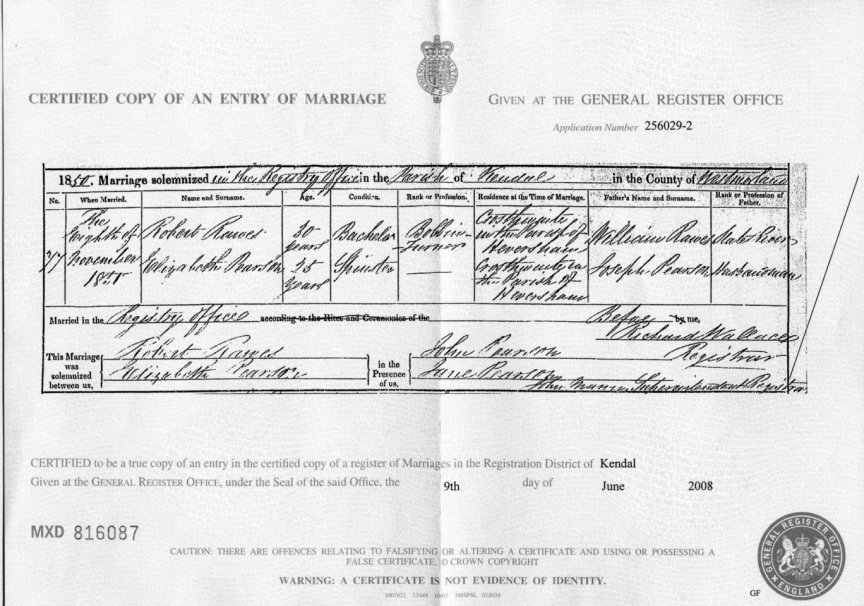 CERTIFIED COPY OF AN ENTRY OF MARRIAGE
GIVEN AT THE GENERAL REGISTER OFFICE
Application Number 256029-2
1850. Marriage solemnized in the Registry Office in the Parish of Kendal in the County of Westmorland
No. When Married. Name and Surname. Age. Condition. Rank or Profession. Residence at the Time of Marriage. Father's Name and Surname. Rank or Profession of Father.
77 The Eighth of November Robert Rawes 30 years Bachelor Bobbin Turner Crosthwaite in the Parish of Heversham William Rawes
Elizabeth Pearson 25 years Spinster — Crosthwaite in the Parish of Heversham Joseph Pearson Husbandman
Married in the Registry Office according to the Rites and Ceremonies of the Before by me,
Richard Wallace
Registrar
This Marriage was solemnized between us, Robert Rawes
Elizabeth Pearson
in the Presence of us, John Pearson
Jane Pearson
John Superintendent Registrar
CERTIFIED to be a true copy of an entry in the certified copy of a register of Marriages in the Registration District of Kendal
Given at the GENERAL REGISTER OFFICE, under the Seal of the said Office, the 9th day of June 2008
MXD 816087
CAUTION: THERE ARE OFFENCES RELATING TO FALSIFYING OR ALTERING A CERTIFICATE AND USING OR POSSESSING A
FALSE CERTIFICATE. © CROWN COPYRIGHT
WARNING: A CERTIFICATE IS NOT EVIDENCE OF IDENTITY.
GF
GENERAL REGISTER OFFICE
ENGLAND